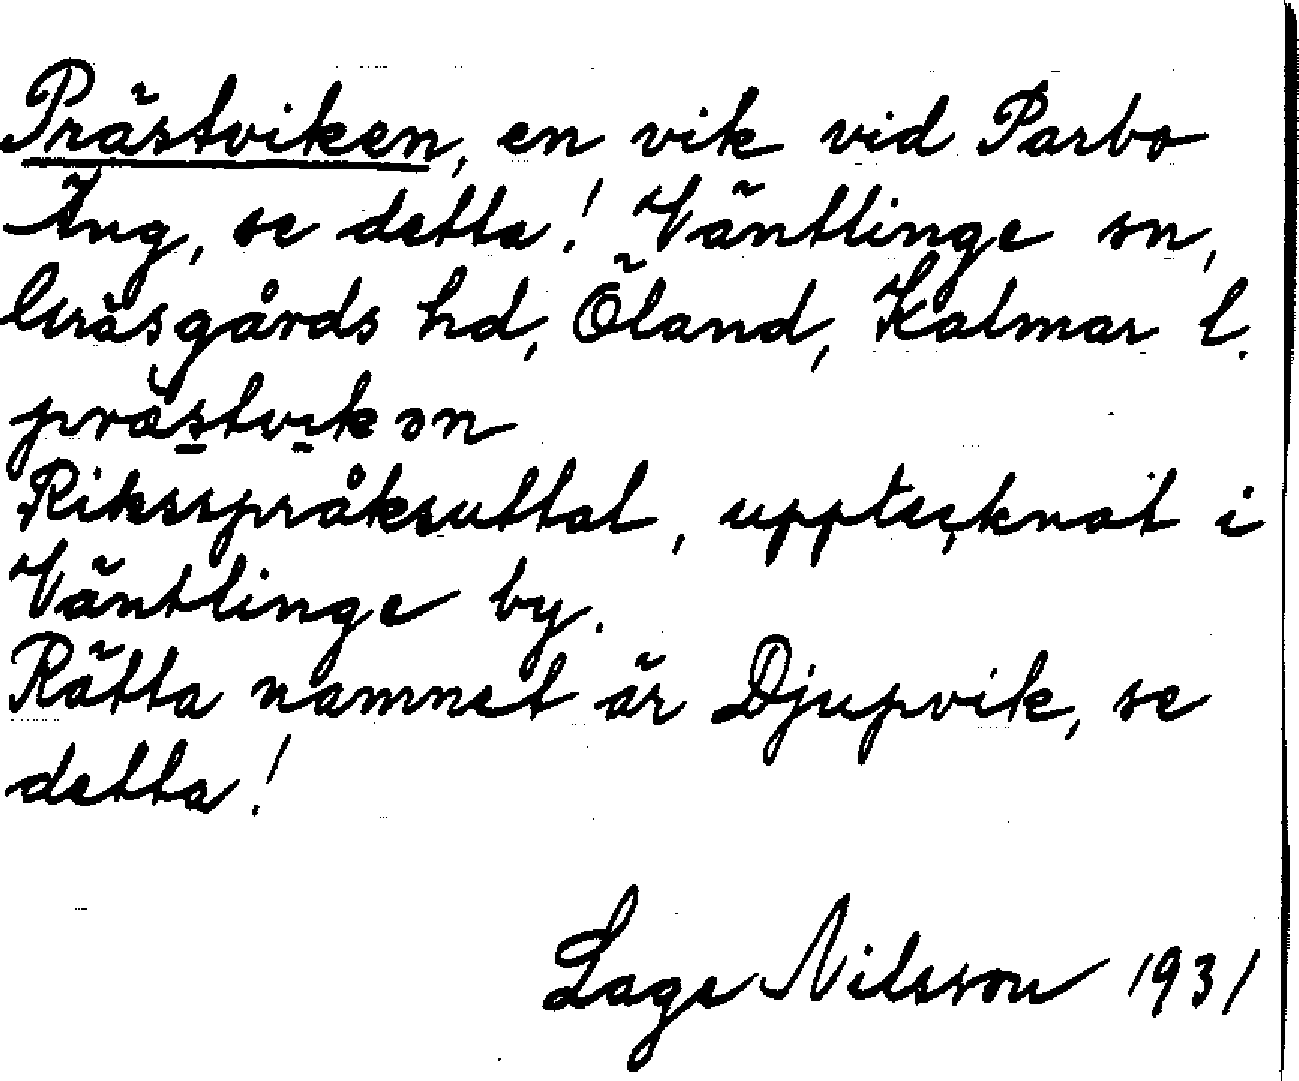 Prästviken, en vik vid Parbo
Äng, se detta! Väntlinge sn,
Gräsgårds hd, Öland, Kalmar l.
präs̲tvi̲kən
Riksspråksuttal, upptecknat i
Väntlinge by.
Rätta namnet är Djupvik, se
detta!
Lage Nilsson 1931